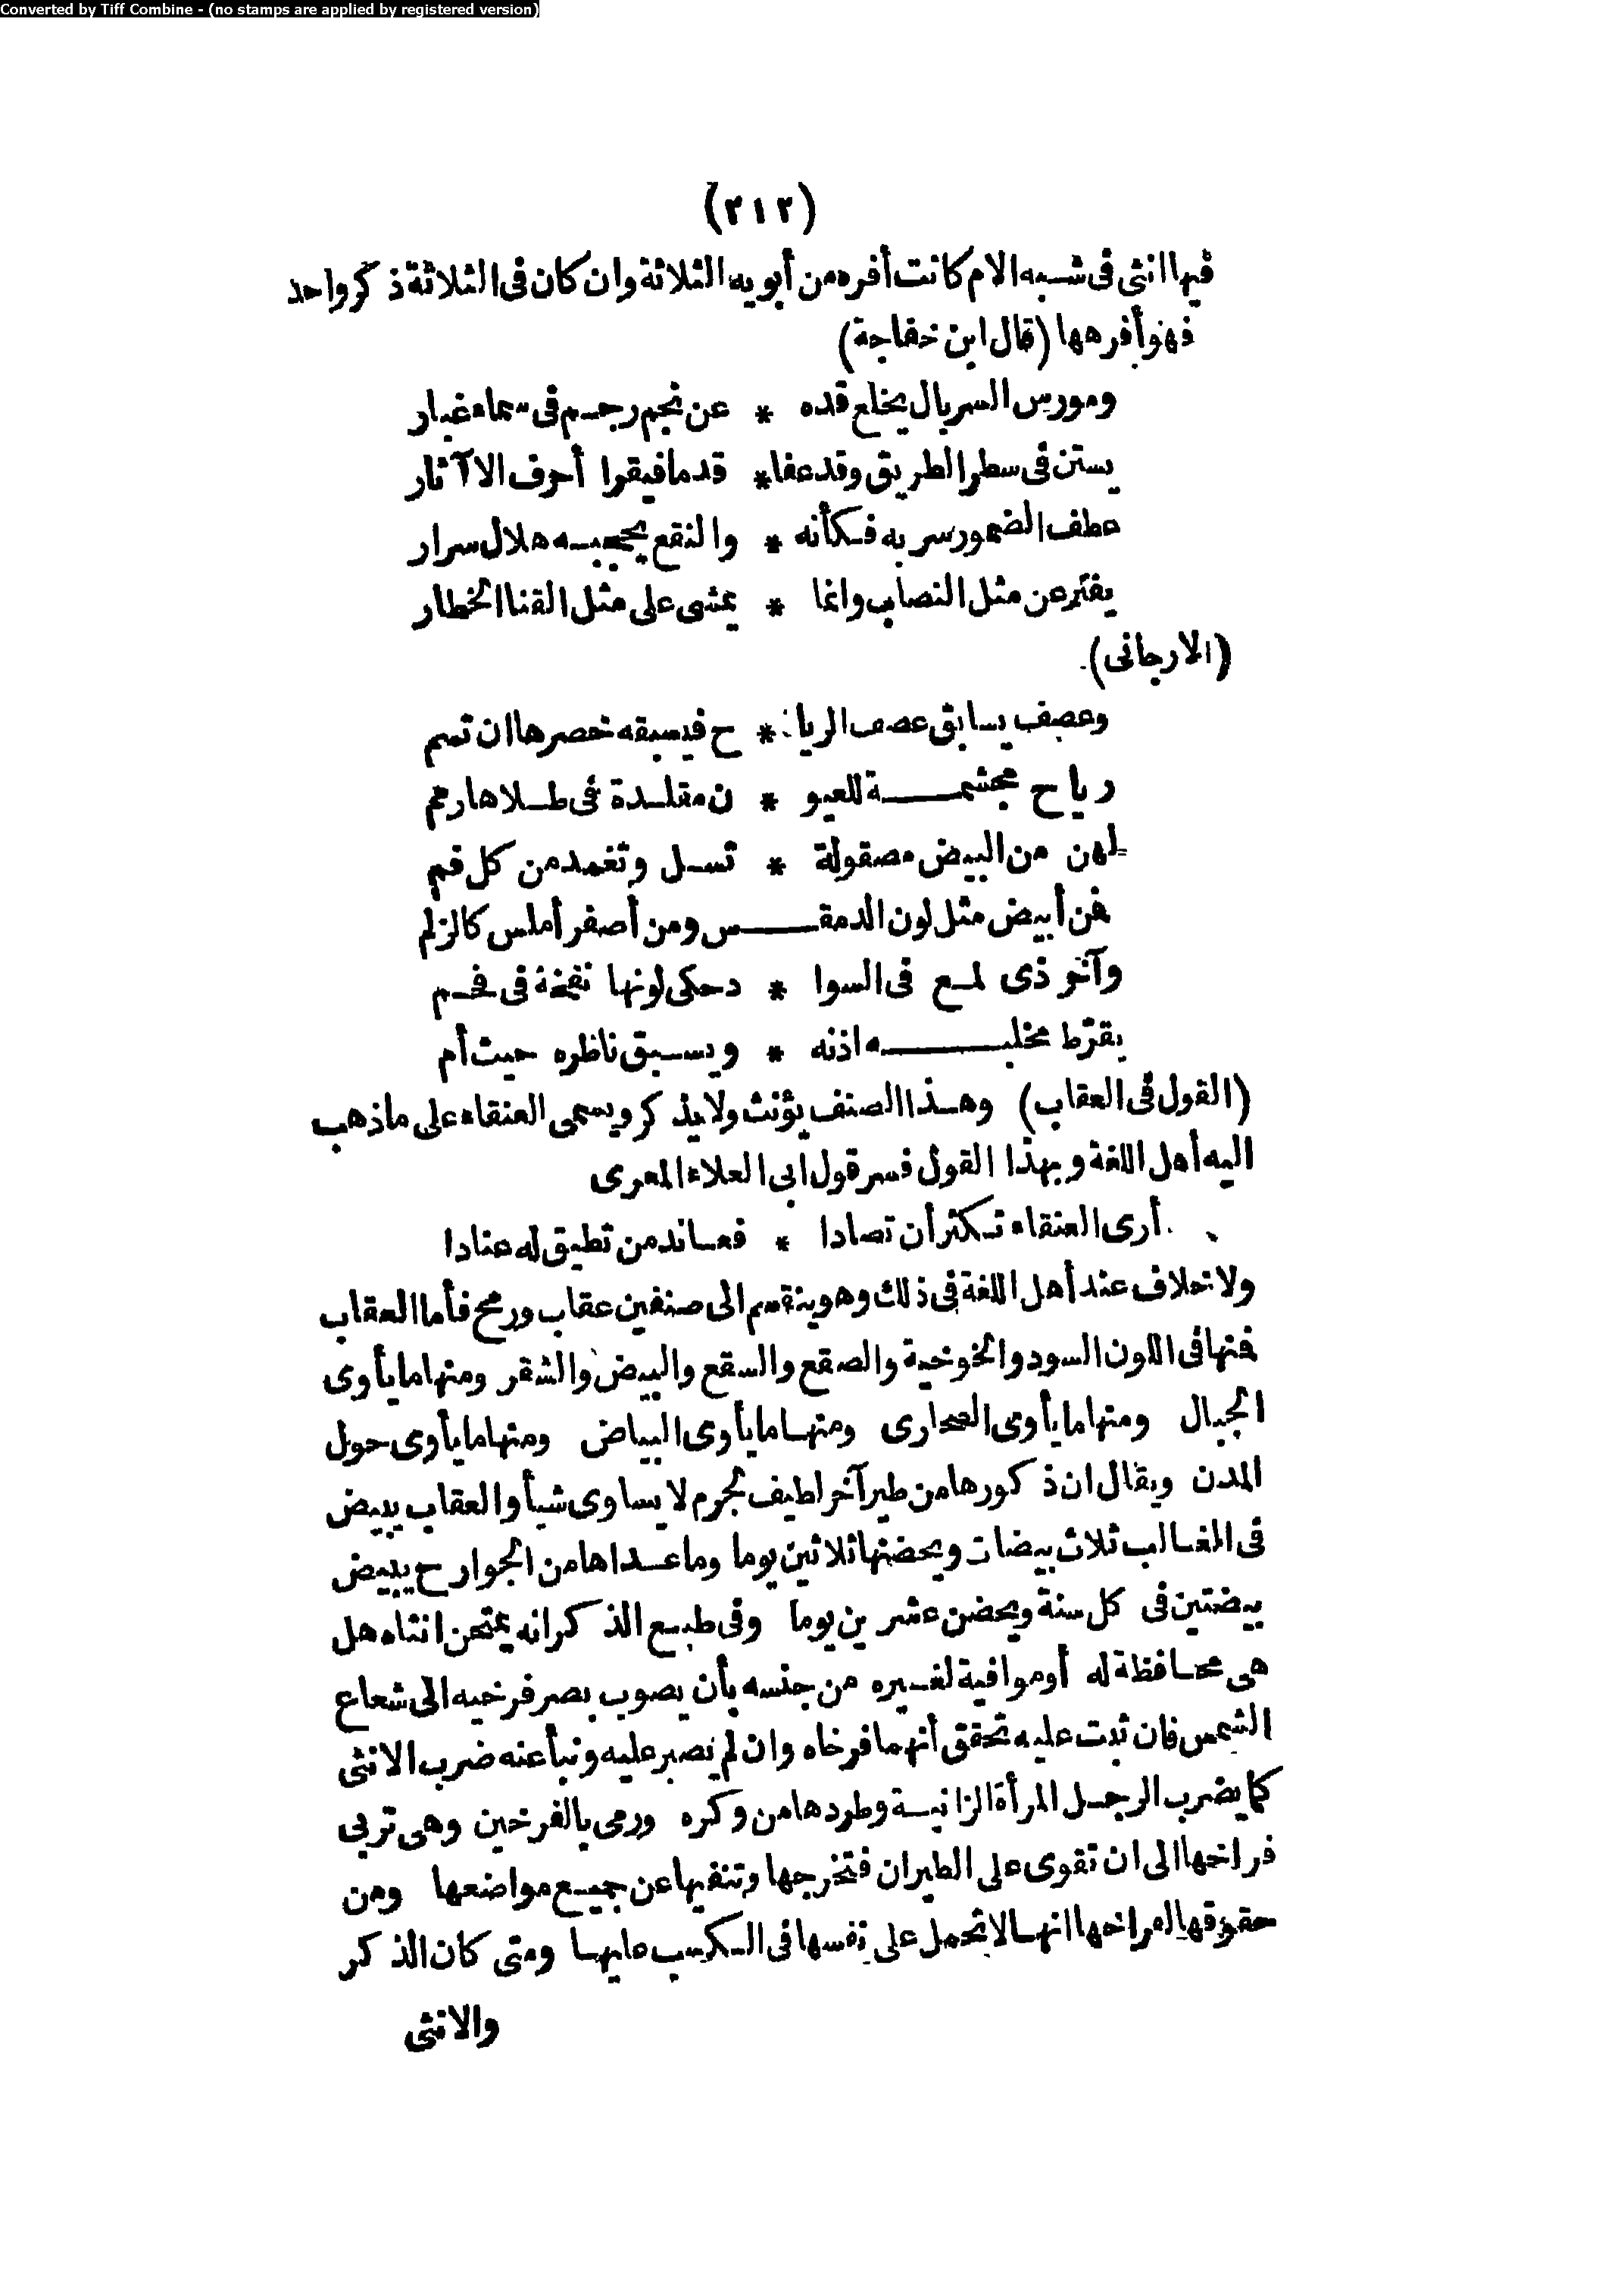 Converted by Tiff Combine - (no stamps are applied by registered version)
(٢١٢)
فيها انثى فى شبه الام كانت أفره من أبويه الثلاثة وان كان فى الثلاثة ذكر واحد
فهو أفرهها (قال ابن خفاجة)
ومورس السربال يخلع قده * عن نجم رجم فى سماء غبار
يستن فى سطر الطريق وقد عفا * قدما فيقرا أحرف الآثار
عطف الضمور سربه فكأنه * والنقع يحجبه هلال سرار
يفتر عن مثل النصاب وانما * يمشى على مثل القنا الخطار
(الارجانى)
وعصف يسابق عصف الريا * ح فيسبقه خصرها ان تسم
رياح مجشمة للعيو * ن مقلدة فى طلاها رمم
لهن من البيض مصقولة * تسل وتغمد من كل فم
فمن أبيض مثل لون الدمقس ومن أصفر أملس كالزلم
وآخر ذى لمع فى السوا * د حكى لونها نفخة فى فحم
يقرّط مخلبه اذنه * ويسبق ناظره حيث أم
(القول فى العقاب) وهذا الصنف يؤنث ولا يذكر ويسمى العنقاء على ما ذهب
اليه أهل اللغة وبهذا القول فسر قول ابى العلاء المعرى
أرى العنقاء تكثر أن تصادا * فعاند من تطيق له عنادا
ولا خلاف عند أهل اللغة فى ذلك وهو ينقسم الى صنفين عقاب ورمج فأما العقاب
فمنها فى اللون السود والخوخية والصقع والسقع والبيض والشقر ومنها ما يأوى
الجبال ومنها ما يأوى الصحارى ومنها ما يأوى البياض ومنها ما يأوى حول
المدن ويقال ان ذكورها من طير آخر لطيف الجرم لا يساوى شيأ والعقاب يبيض
فى الغالب ثلاث بيضات ويحضنها ثلاثين يوما وما عداها من الجوارح يبيض
بيضتين فى كل سنة ويحضن عشرين يوما وفى طبع الذكر انه يمتحن انثاه هل
هى محافظة له أو موافية لغيره من جنسه بأن يصوب بصر فرخيه الى شعاع
الشمس فان ثبت عليه تحقق أنهما فرخاه وان لم يصبر عليه ونبأ عنه ضرب الانثى
كما يضرب الرجل المرأة الزانية وطردها من وكره ورمى بالفرخين وهى تربى
فراخها الى ان تقوى على الطيران فتخرجها وتنفيها عن جميع مواضعها ومن
حقوقها لفراخها انها لا تحمل على نفسها فى الكسب عليها ومتى كان الذكر
والانثى